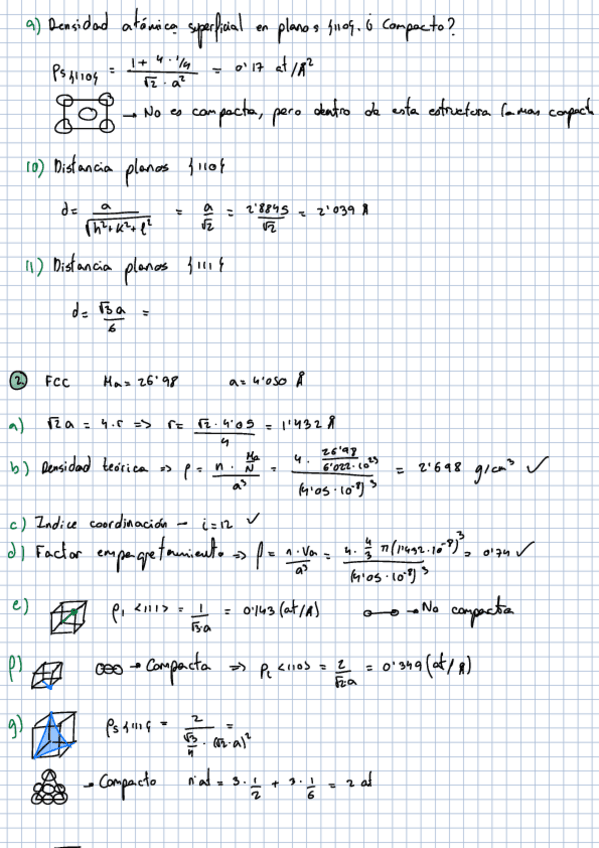 9) Densidad atómica superficial en planos {110}. ó Compacto?
ρs{110} = (1 + 4 · 1/4) / (√2 · a²) = 0'17 at/Å²
→ No es compacta, pero dentro de esta estructura la mas compact
10) Distancia planos {110}
d = a / √(h² + k² + l²) = a/√2 = 2'8845/√2 = 2'039 Å
11) Distancia planos {111}
d = √3 a / 6 =
2 FCC Ma = 26'98 a = 4'050 Å
a) √2 a = 4 · r => r = √2 · 4'05 / 4 = 1'432 Å
b) Densidad teórica => ρ = (n · Ma/N) / a³ = (4 · 26'98 / 6'022 · 10²³) / (4'05 · 10⁻⁸)³ = 2'698 g/cm³ ✓
c) Indice coordinación – i = 12 ✓
d) Factor empaquetamiento => f = n · Va / a³ = (4 · 4/3 π (1'432 · 10⁻⁸)³) / (4'05 · 10⁻⁸)³ = 0'74 ✓
e) ρl <111> = 1 / √3·a = 0'143 (at/Å) → No compacta
f) → Compacta => ρl <110> = 2 / √2a = 0'349 (at/Å)
g) ρs {111} = 2 / (√3/4 · (√2·a)²) =
→ Compacto nºat = 3 · 1/2 + 3 · 1/6 = 2 at